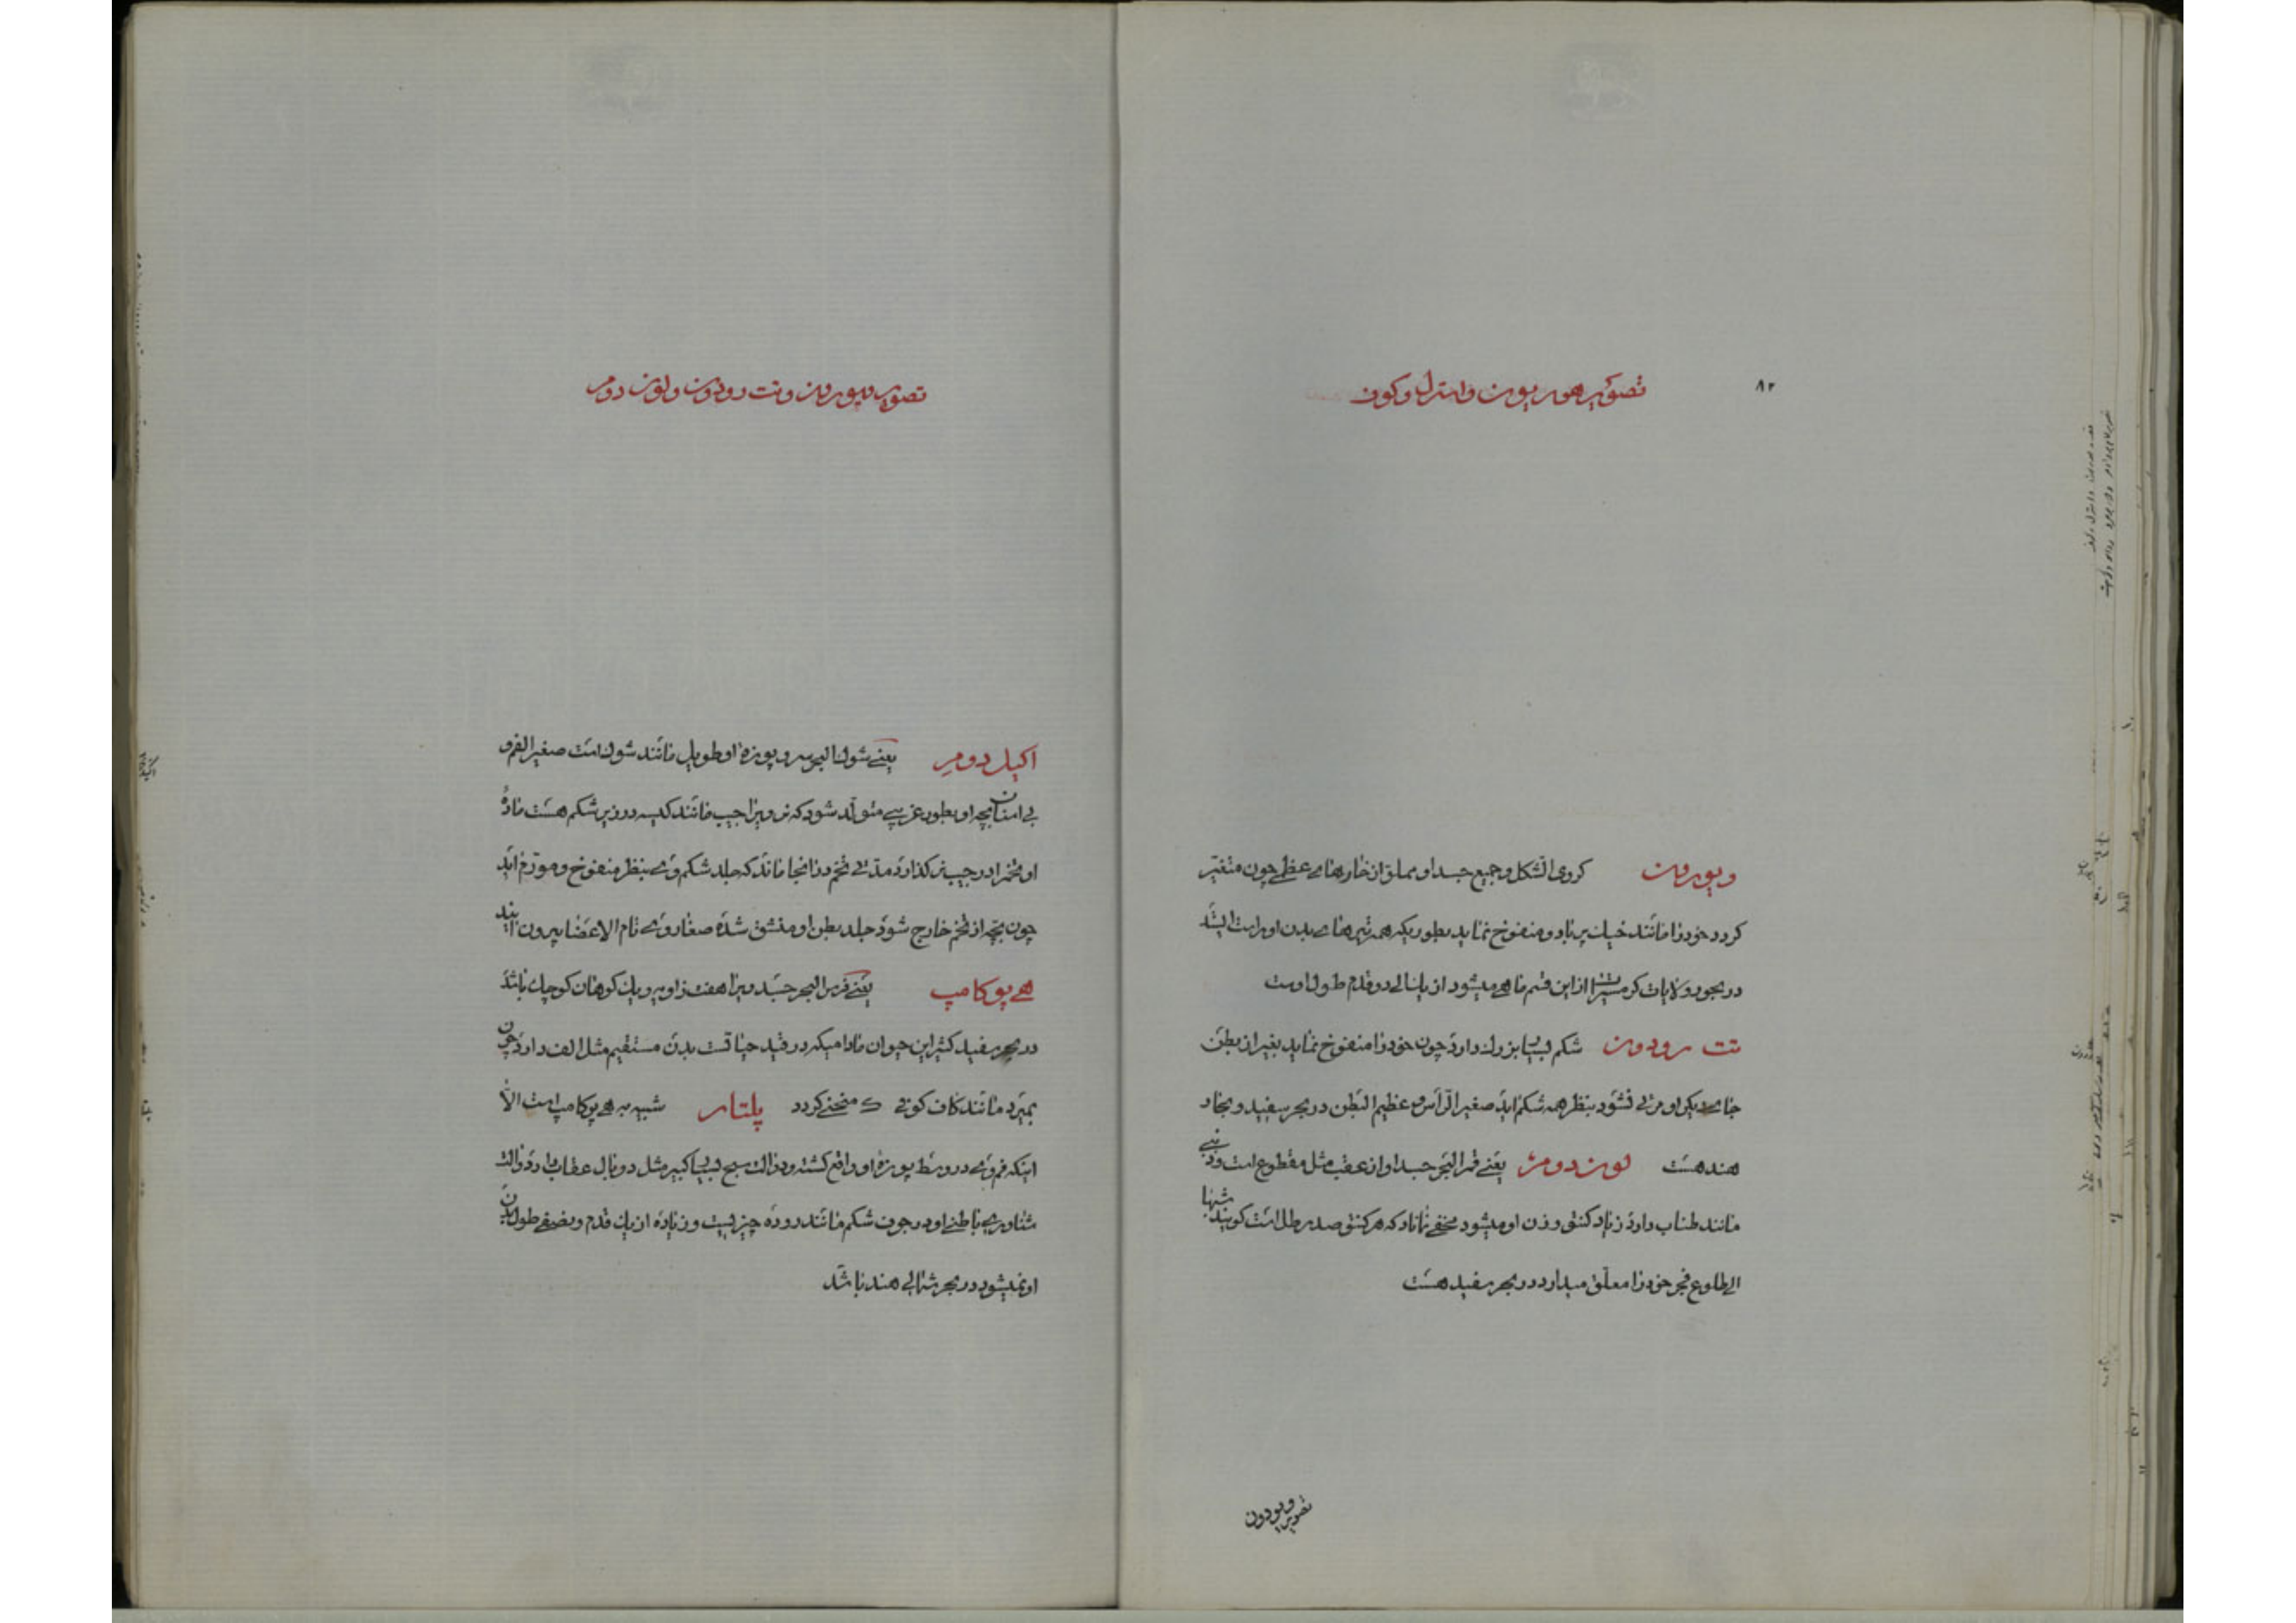 تصویر هوریون و استرل و کوف
۸۲
ویورون کروی الشکل و جمیع جسد او مملو از خارهای عظمی چون متغیّر
کردد خود را مانند خیک پرباد و منفوخ نماید بطوریکه همه تیرهای بدن او راست ایستد
در بحور ولایات کرمسیر از این قسم ماهی میشود از یک الی دو قدم طول اوست
تت رودون شکم بسیار بزرك دارد چون خود را منفوخ نماید بغیر از بطن
جای دیکر او مرئی نشود بنظر همه شکم اید صغیر الرأس و عظیم البطن در بحر سفید و بحار
هند هست لون دومر یعنی قمر البحر جسد او از عقب مثل مقطوع است و ذنبی
مانند طناب دارد زیاد کنتی وزن او میشود مخفی نماناد که هر کنتی صد رطل است کویند شبها
الی طلوع فجر خود را معلّق میدارد در بحر سفید هست
تصویر ویورون
تصویر ویورون و تت رودون و لون دومر
اکیل دومر یعنی شوك البحر سر و پوزه او طویل مانند شوك است صغیر الفم و
بی اسنان بچه او بطور غریبی متولّد شود که نر ویرا جیب مانند کیسه در زیر شکم هست ماده
او تخمرا در جیب نر کذارد مدتی تخم در انجا ماند که جلد شکم وی بنظر منفوخ و مورّم اید
چون بچه از تخم خارج شود جلد بطن او منشق شده صغار وی تام الاعضا بیرون ایند
هی پوکامپ یعنی فرس البحر جسد ویرا هفت زاویه و یك کوهان کوچك باشد
در بحر سفید کثیر این حیوان مادامیکه در قید حیاتست بدن مستقیم مثل الف دارد چون
بمیرد مانند کاف کوفی ک منحنی کردد پلتار شبیه به هی پوکامپ است الّا
اینکه فم وی در وسط پوزه او واقع کشته و ذوالت سبح بسیار کبیر مثل دو بال عقاب دارد والت
شناوری باطنی او در جوف شکم مانند روده چیزیست و زیاده از یك قدم و نصفی طول بدن
او نمیشود در بحر شمالی هند باشد